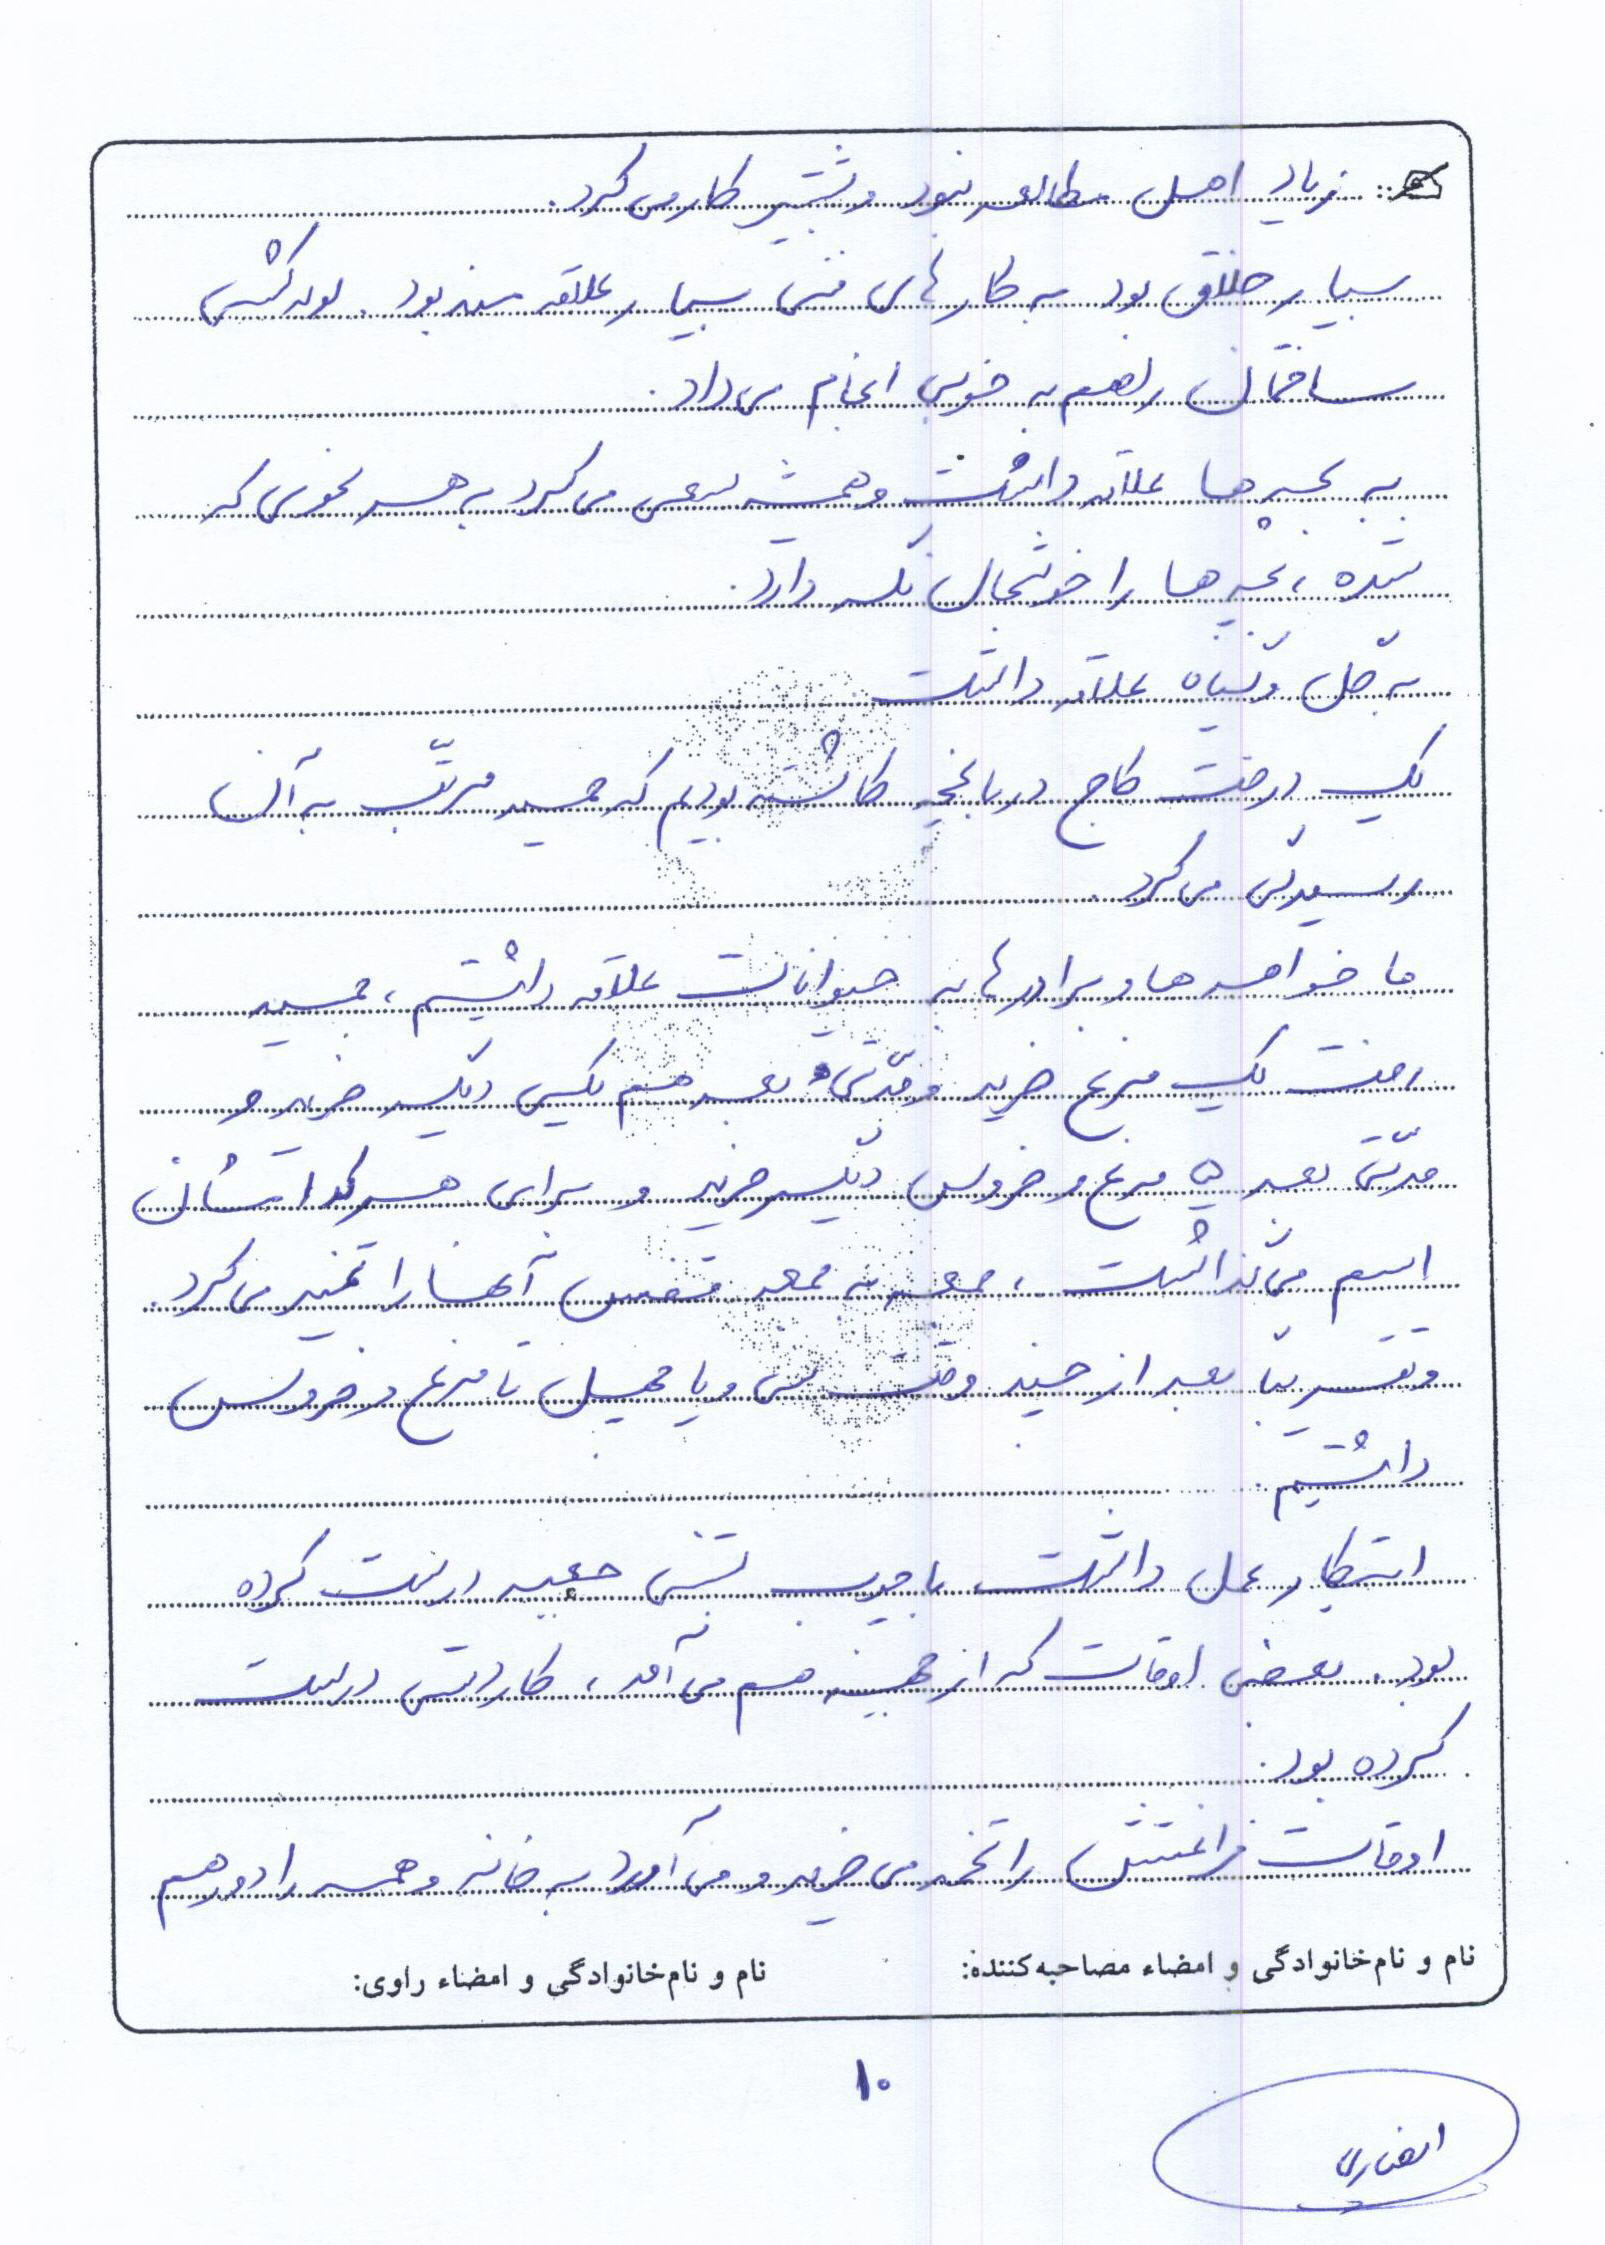 زیاد اهل مطالعه نبود و بیشتر کار می‌کرد.
بسیار خلاق بود به کارهای فنی بسیار علاقه مند بود. لوله کشی
ساختمان را هم به خوبی انجام می‌داد.
به بچه‌ها علاقه داشت و همیشه سعی می‌کرد به هر نحوی که
شده، بچه‌ها را خوشحال نگه دارد.
به گل و گیاه علاقه داشت
یک درخت کاج در باغچه کاشته بودیم که حمید مرتّب به آن
رسیدگی می‌کرد.
ما خواهرها و برادرها به حیوانات علاقه داشتیم، حمید
رفت یک مرغ خرید و مدّتی بعد هم یکی دیگر خرید و
مدّتی بعد ۵ مرغ و خروس دیگر خرید و برای هر کدامشان
اسم می‌گذاشت، جمعه به جمعه قفس آنها را تمیز می‌کرد.
و تقریباً بعد از چند وقت سی و یا چهل تا مرغ و خروس
داشتیم.
ابتکار عمل داشت با چوب بستنی جعبه درست کرده
بود. بعضی اوقات که از جبهه هم می‌آمد، کاردستی درست
کرده بود.
اوقات فراغتش را تخمه می‌خرید و می‌آورد به خانه و همه را دور هم
نام و نام‌خانوادگی و امضاء مصاحبه‌کننده: نام و نام‌خانوادگی و امضاء راوی:
۱۰
انصاری